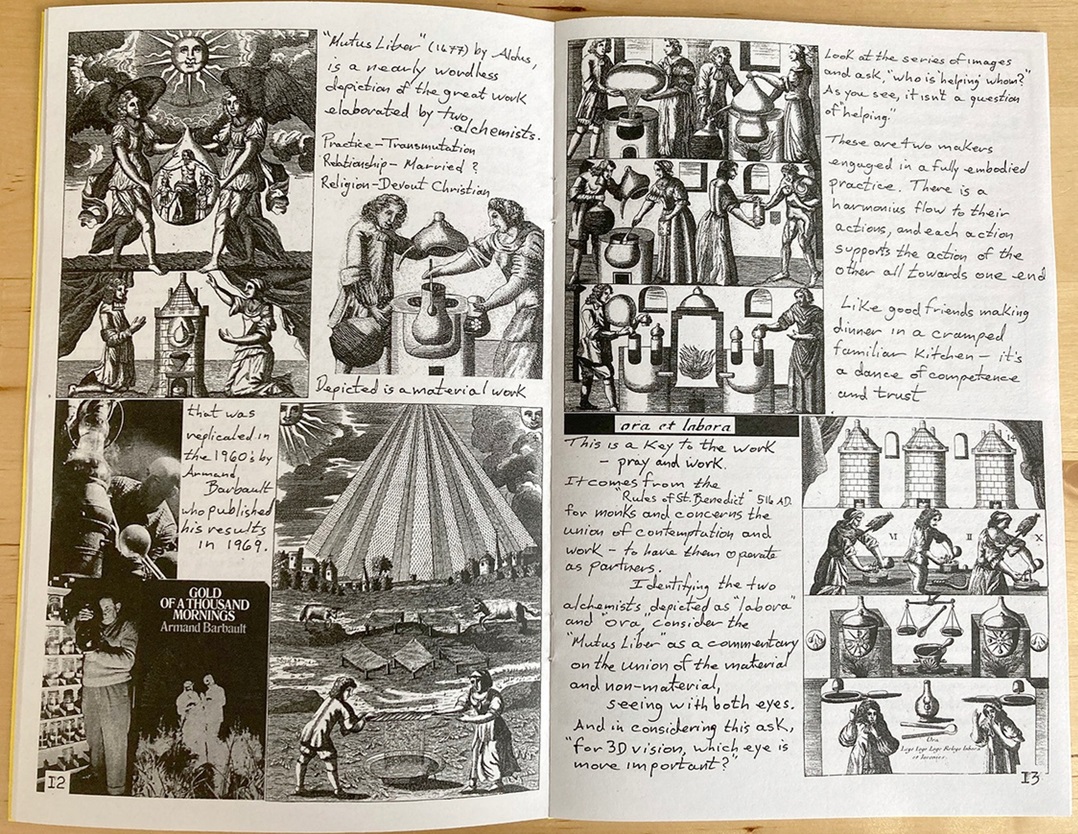 "Mutus Liber" (1677) by Aldus,
is a nearly wordless
depiction of the great work
elaborated by two
alchemists.
Practice - Transmutation
Relationship - Married?
Religion - Devout Christian
Depicted is a material work
that was
replicated in
the 1960's by
Armand
Barbault
who published
his results
in 1969.
GOLD
OF A THOUSAND
MORNINGS
Armand Barbault
12
Look at the series of images
and ask, "who is helping whom?"
As you see, it isn't a question
of "helping."
These are two makers
engaged in a fully embodied
practice. There is a
harmonius flow to their
actions, and each action
supports the action of the
other all towards one end
Like good friends making
dinner in a cramped
familiar kitchen - it's
a dance of competence
and trust
ora et labora
This is a key to the work
- pray and work.
It comes from the
"Rules of St. Benedict" 516 AD.
for monks and concerns the
union of contemptation and
work - to have them operate
as partners.
Identifying the two
alchemists depicted as "labora"
and "ora" consider the
"Mutus Liber" as a commentary
on the union of the material
and non-material,
seeing with both eyes.
And in considering this ask,
"for 3D vision, which eye is
more important?"
14
VI II X
Ora
Lege Lege Lege Relege labora
et Invenies.
13